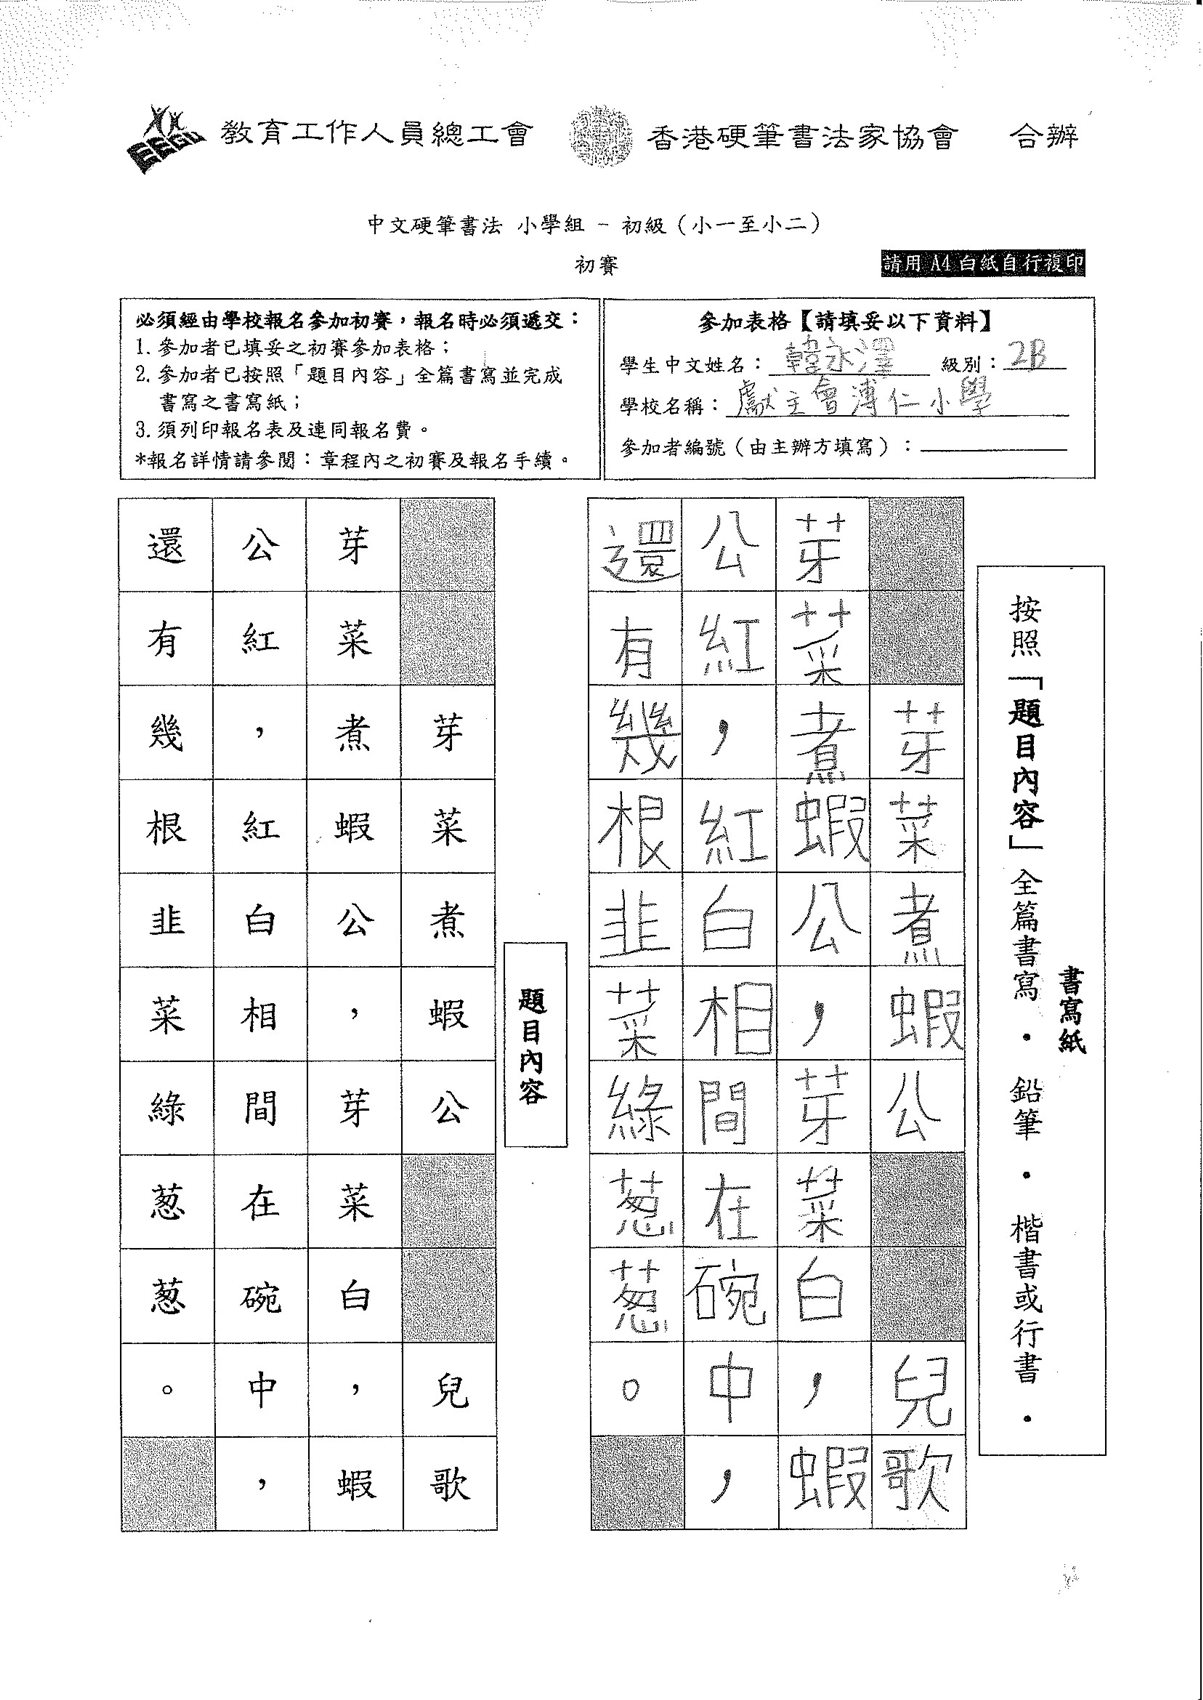 教育工作人員總工會 香港硬筆書法家協會 合辦
中文硬筆書法 小學組 - 初級（小一至小二）
初賽
請用 A4 白紙自行複印
必須經由學校報名參加初賽，報名時必須遞交：
1. 參加者已填妥之初賽參加表格；
2. 參加者已按照「題目內容」全篇書寫並完成
書寫之書寫紙；
3. 須列印報名表及連同報名費。
*報名詳情請參閱：章程內之初賽及報名手續。
參加表格【請填妥以下資料】
學生中文姓名：韓永澤 級別：2B
學校名稱：獻主會溥仁小學
參加者編號（由主辦方填寫）：
書寫紙
按照「題目內容」全篇書寫．鉛筆．楷書或行書．
芽菜煮蝦公 兒歌
芽菜煮蝦公，芽菜白，蝦
公紅，紅白相間在碗中，
還有幾根韭菜綠葱葱。
題目內容
芽菜煮蝦公 兒歌
芽菜煮蝦公，芽菜白，蝦
公紅，紅白相間在碗中，
還有幾根韭菜綠葱葱。